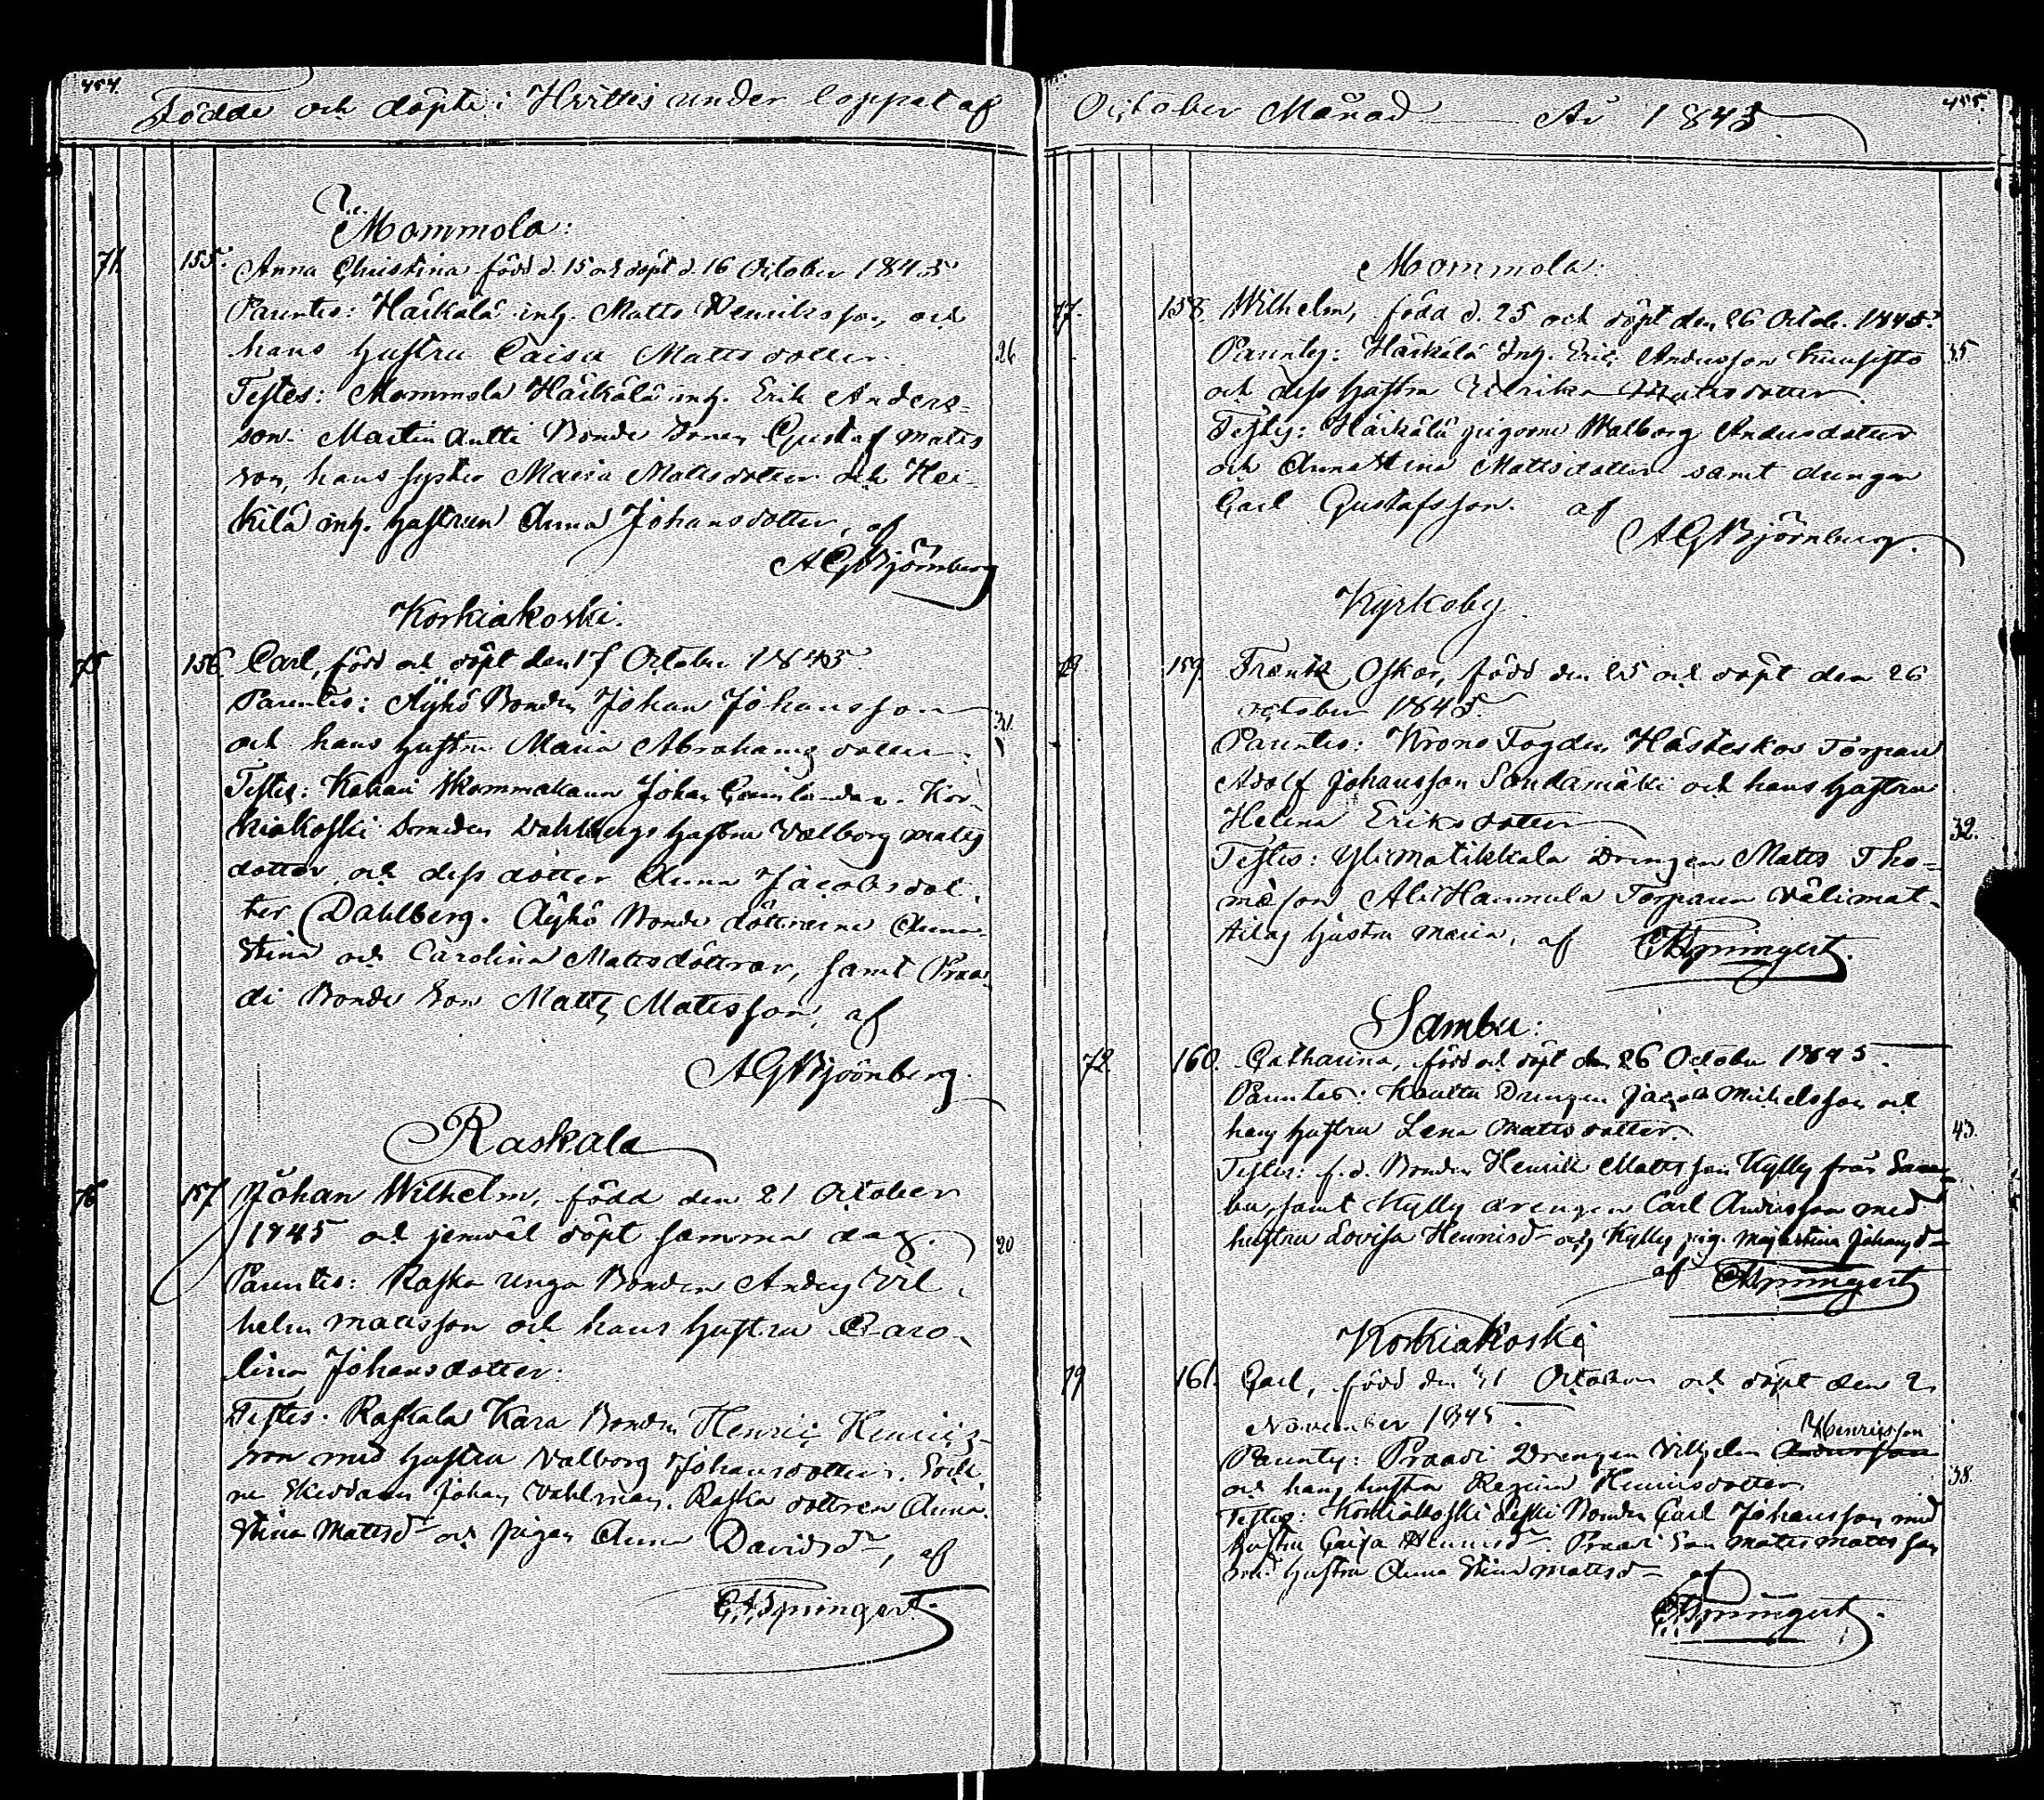 454.
Födde och döpte i Hvittis under loppet af
Mommola:
71. 155. Anna Christina född d. 15 och döpt d. 16 October 1845
Parentes: Häikälä inh. Matts Henriksson, och
hans hustru Caisa Mattsdotter. 26
Testes: Mommola Häikälä inh. Erik Anders-
son. Martin Antti Bonde Sonen Gustaf Matts
son, hans syster Maria Mattsdotter och Hei-
kilä inh. hustrun Anna Johansdotter, af
AGBjörnberg
Korkiakoski.
75 156. Carl, född och döpt den 17 October 1845.
Parentes: Äyhö Bonden Johan Johansson
och hans hustru Maria Abrahams dotter. 31.
Testes: Kahari Skommakaren Johan. Kor-
kiakoski Smeden Dahlbergs hustru Valborg Matts
dotter och dess dotter Anna Jacobsdot-
ter Dahlberg. Äyhö Bonde döttrarne Anna
Stina och Carolina Mattsdöttrar, samt Praa-
di Bonde Son Matts Mattsson, af
AGBjörnberg.
Raskala
76 157 Johan Wilhelm, född den 21 October
1845 och jemväl döpt samma dag. 20
Parentes: Raska unga Bonden Anders Vil
helm Mattsson och hans hustru Caro-
lina Johansdotter.
Testes. Raskala Kara Bonden Henric Henrics-
son med hustru Valborg Johansdotter. Socke
ne Skräddaren Johan Dahlman. Raska dottren Anna
Stina Mattsd och pigan Anna Davidsd, af
455.
October Månad År 1845
Mommola.
77. 158. Wilhelm, född d. 25 och döpt den 26 Octob. 1845.
Parentes: Häikälä Inh. Eric Andersson Kuusisto 35
och dess hustru Ulrika Mattsdotter.
Testes: Häikälä pigorne Walborg Andersdotter
och Anna Stina Mattsdotter samt drengen
Carl Gustafsson. af
AGBjörnberg.
Kyrkoby.
159. Frantz Oskar, född den 25 och döpt den 26
october 1845.
Parentes: Krono Fogden Hästeskos Torparen
Adolf Johansson Sandamäki och hans hustru
Helena Eriksdotter 32.
Testes: Ylimatikkala Drengen Matts Tho-
mæson Ali Hannula Torparen Välimat-
tilas hustru Maria, af
Sambu:
72. 160. Catharina, född och döpt den 26 October 1845.
Parentes: Kautta Drengen Jacob Michelsson och
hans hustru Lena Mattsdotter. 43.
Testes: f.d. Bonden Henrik Mattsson Kylly från Sam-
bu, samt Kylly drengen Carl Andersson med
hustru Lovisa Henricsd och Kylly pig. Majastina Johansd
af
Korkiakoski
79 161. Carl, född den 31 October och döpt den 2
November 1845.
Henricsson
Parentes: Praadi Drengen Vilhelm Andersson
och hans hustru Regina Henricsdotter. 38.
Testes: Korkiakoski Bonden Carl Johansson med
hustru Caisa Henricsd. Praadi Son Matts Mattsson
med hustru Anna Stina Mattsd af